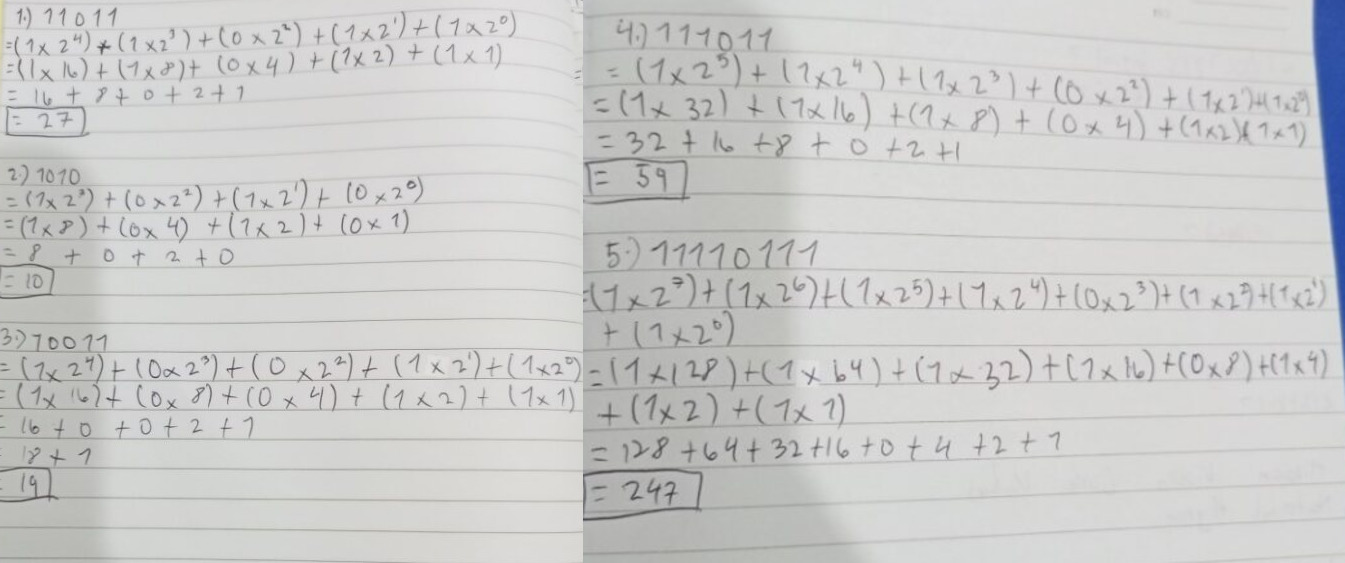 1.) 11011
=(1 x 2⁴) + (1 x 2³) + (0 x 2²) + (1 x 2¹) + (1 x 2⁰)
=(1 x 16) + (1 x 8) + (0 x 4) + (1 x 2) + (1 x 1)
= 16 + 8 + 0 + 2 + 1
= 27
2.) 1010
= (1 x 2³) + (0 x 2²) + (1 x 2¹) + (0 x 2⁰)
=(1 x 8) + (0 x 4) + (1 x 2) + (0 x 1)
= 8 + 0 + 2 + 0
= 10
3.) 10011
= (1 x 2⁴) + (0 x 2³) + (0 x 2²) + (1 x 2¹) + (1 x 2⁰)
= (1 x 16) + (0 x 8) + (0 x 4) + (1 x 2) + (1 x 1)
= 16 + 0 + 0 + 2 + 1
= 18 + 1
= 19
4.) 111011
= (1 x 2⁵) + (1 x 2⁴) + (1 x 2³) + (0 x 2²) + (1 x 2¹) + (1 x 2⁰)
= (1 x 32) + (1 x 16) + (1 x 8) + (0 x 4) + (1 x 2) + (1 x 1)
= 32 + 16 + 8 + 0 + 2 + 1
= 59
5.) 11110111
=(1 x 2⁷) + (1 x 2⁶) + (1 x 2⁵) + (1 x 2⁴) + (0 x 2³) + (1 x 2²) + (1 x 2¹)
+ (1 x 2⁰)
= (1 x 128) + (1 x 64) + (1 x 32) + (1 x 16) + (0 x 8) + (1 x 4)
+ (1 x 2) + (1 x 1)
= 128 + 64 + 32 + 16 + 0 + 4 + 2 + 1
= 247